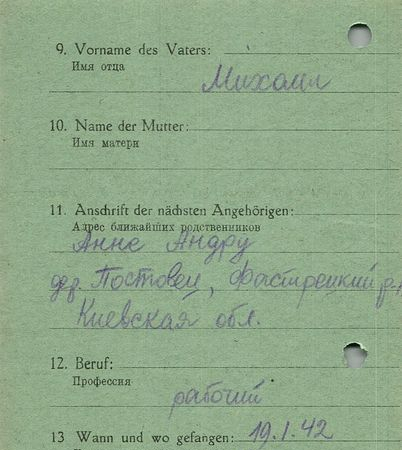 9. Vorname des Vaters:
Имя отца
Михаил
10. Name der Mutter:
Имя матери
11. Anschrift der nächsten Angehörigen:
Адрес ближайших родственников
Анне Андру
дер. Постовец, Фастрецкий р.
Киевская обл.
12. Beruf:
Профессия
рабочий
13 Wann und wo gefangen: 19.I.42